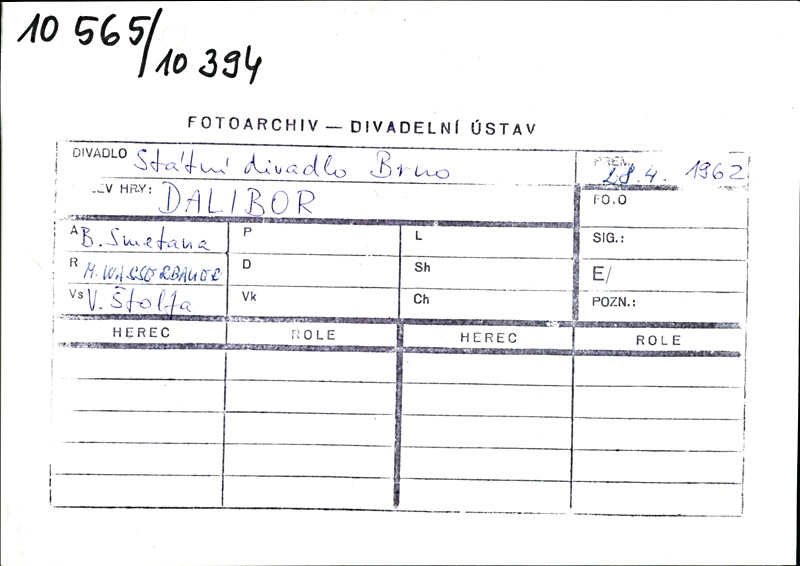 10 565/10 394
FOTOARCHIV — DIVADELNÍ ÚSTAV
DIVADLO Státní divadlo Brno
PREM. 28.4. 1962
EV HRY: DALIBOR
FO.O
A B. Smetana P L
SIG.:
R M. WASSERBAUER D Sh
E/
Vs V. Štolfa Vk Ch
POZN.:
HEREC ROLE HEREC ROLE